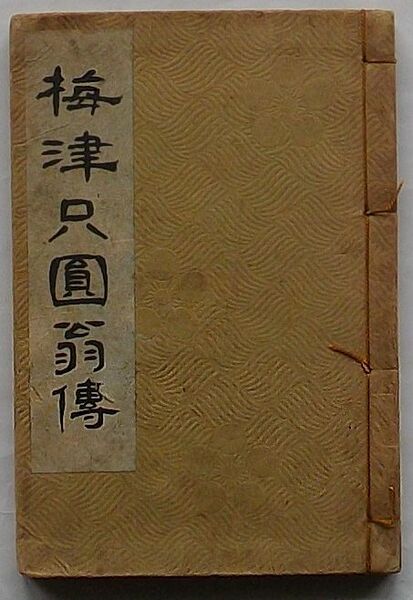 梅津只圓翁傳